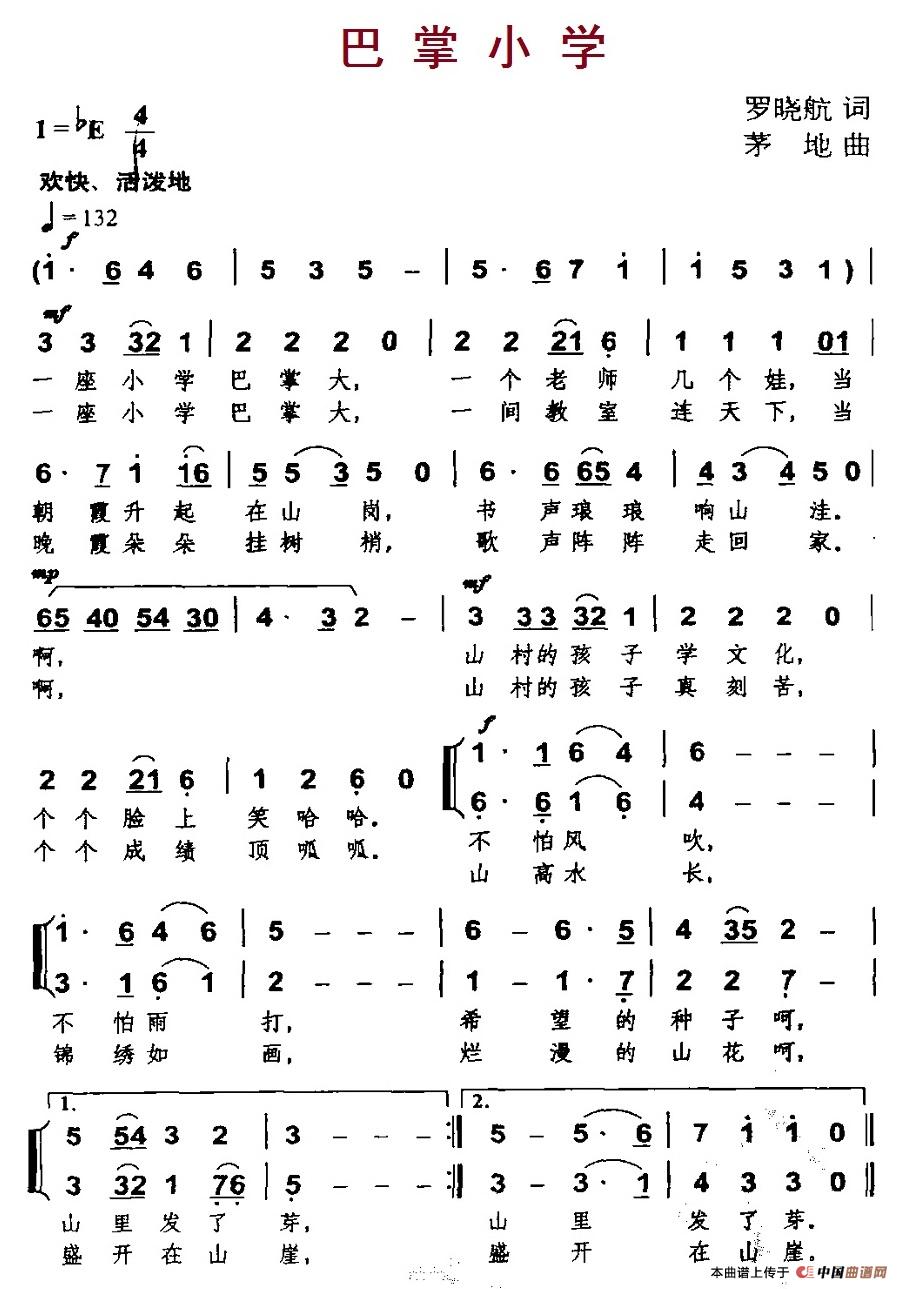 巴掌小学
罗晓航 词
1=♭E 4/4
茅 地 曲
欢快、活泼地
♩=132
f
(1· 6 4 6 | 5 3 5 – | 5· 6 7 1 | 1 5 3 1) |
mf
3 3 32 1 | 2 2 2 0 | 2 2 21 6 | 1 1 1 01 |
一 座 小 学 巴 掌 大, 一 个 老 师 几 个 娃, 当
一 座 小 学 巴 掌 大, 一 间 教 室 连 天 下, 当
6· 7 1 16 | 5 5 3 5 0 | 6· 6 65 4 | 4 3 4 5 0 |
朝 霞 升 起 在 山 岗, 书 声 琅 琅 响 山 洼.
晚 霞 朵 朵 挂 树 梢, 歌 声 阵 阵 走 回 家.
mp mf
65 40 54 30 | 4· 3 2 – | 3 33 32 1 | 2 2 2 0 |
啊, 山 村的 孩 子 学 文 化,
啊, 山 村的 孩 子 真 刻 苦,
f
1· 1 6 4 | 6 – – – |
2 2 21 6 | 1 2 6 0
6· 6 1 6 | 4 – – – |
个 个 脸 上 笑 哈 哈. 不 怕 风 吹,
个 个 成 绩 顶 呱 呱. 山 高 水 长,
1· 6 4 6 | 5 – – – | 6 – 6· 5 | 4 35 2 – |
3· 1 6 1 | 2 – – – | 1 – 1· 7 | 2 2 7 – |
不 怕 雨 打, 希 望 的 种 子 呵,
锦 绣 如 画, 烂 漫 的 山 花 呵,
1. 2.
5 54 3 2 | 3 – – – :‖ 5 – 5· 6 | 7 1 1 0 ‖
3 32 1 76 | 5 – – – :‖ 3 – 3· 1 | 4 3 3 0 ‖
山 里 发 了 芽, 山 里 发 了 芽.
盛 开 在 山 崖, 盛 开 在 山 崖.
本曲谱上传于 中国曲谱网